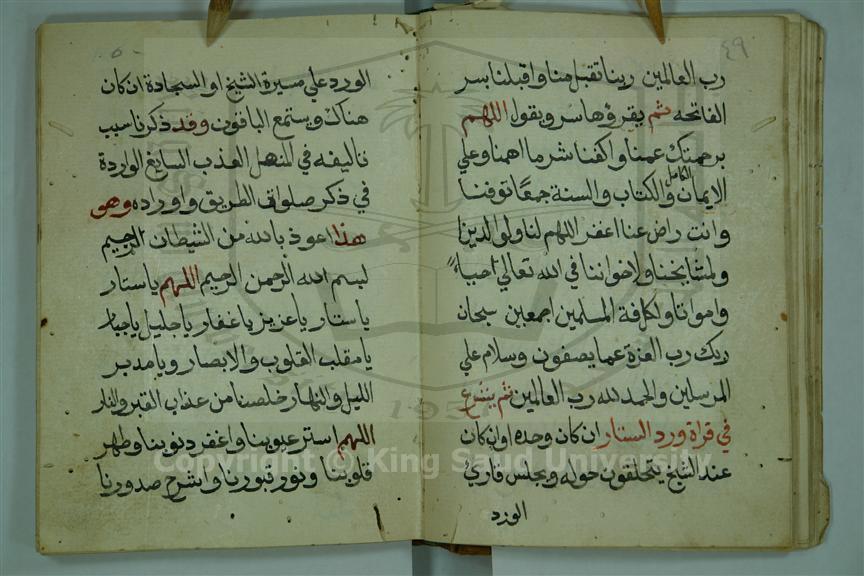 ٤٩
رب العالمين ربنا تقبل منا واقبلنا بسر
الفاتحه ثم يقرؤها سر ويقول اللهم
برحمتك عمنا واكفنا شر ما اهمنا وعلي
الايمان الكامل والكتاب والسنة جمعًا توفنا
وانت راض عنا اغفر اللهم لنا ولوالدينا
ولمشايخنا ولاخواننا في الله تعالي احياءً
وامواتا ولكافة المسلمين اجمعين سبحان
ربك رب العزة عما يصفون وسلام علي
المرسلين والحمد لله رب العالمين ثم يشرع
في قراة ورد الستار ان كان وحده او ان كان
عند الشيخ يتحلقون حوله ويجلس قاريُ
الورد
الورد علي ميسرة الشيخ او السجادة ان كان
هناك ويستمع الباقون وقد ذكرنا سبب
تاليفه في المنهل العذب السايغ الواردة
في ذكر صلوات الطريق واوراده وهو
هذا اعوذ بالله من الشيطان الرجيم
لبسم الله الرحمن الرحيم اللهم يا ستار
يا ستار يا عزيز يا غفار يا جليل يا جبار
يا مقلب القلوب والابصار ويا مدبر
الليل والنهار خلصنا من عذاب القبر والنار
اللهم استر عيوبنا واغفر ذنوبنا وطهر
قلوبنا ونور قبورنا واشرح صدورنا
1957
Copyright © King Saud University